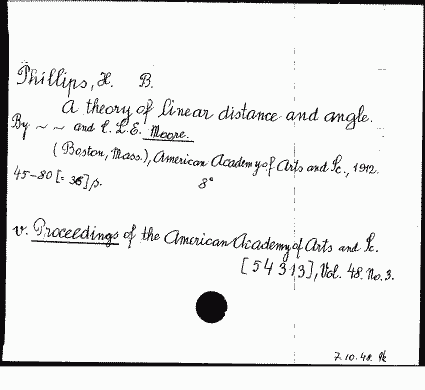 Phillips, H. B.
A theory of linear distance and angle.
By ~ ~ and C. L. E. Moore.
(Boston, Mass.), American Academy of Arts and Sc., 1912.
45-80 [= 36] p. 8°
v. Proceedings of the American Academy of Arts and Sc.
[54313], Vol. 48. No. 3.
7.10.48.